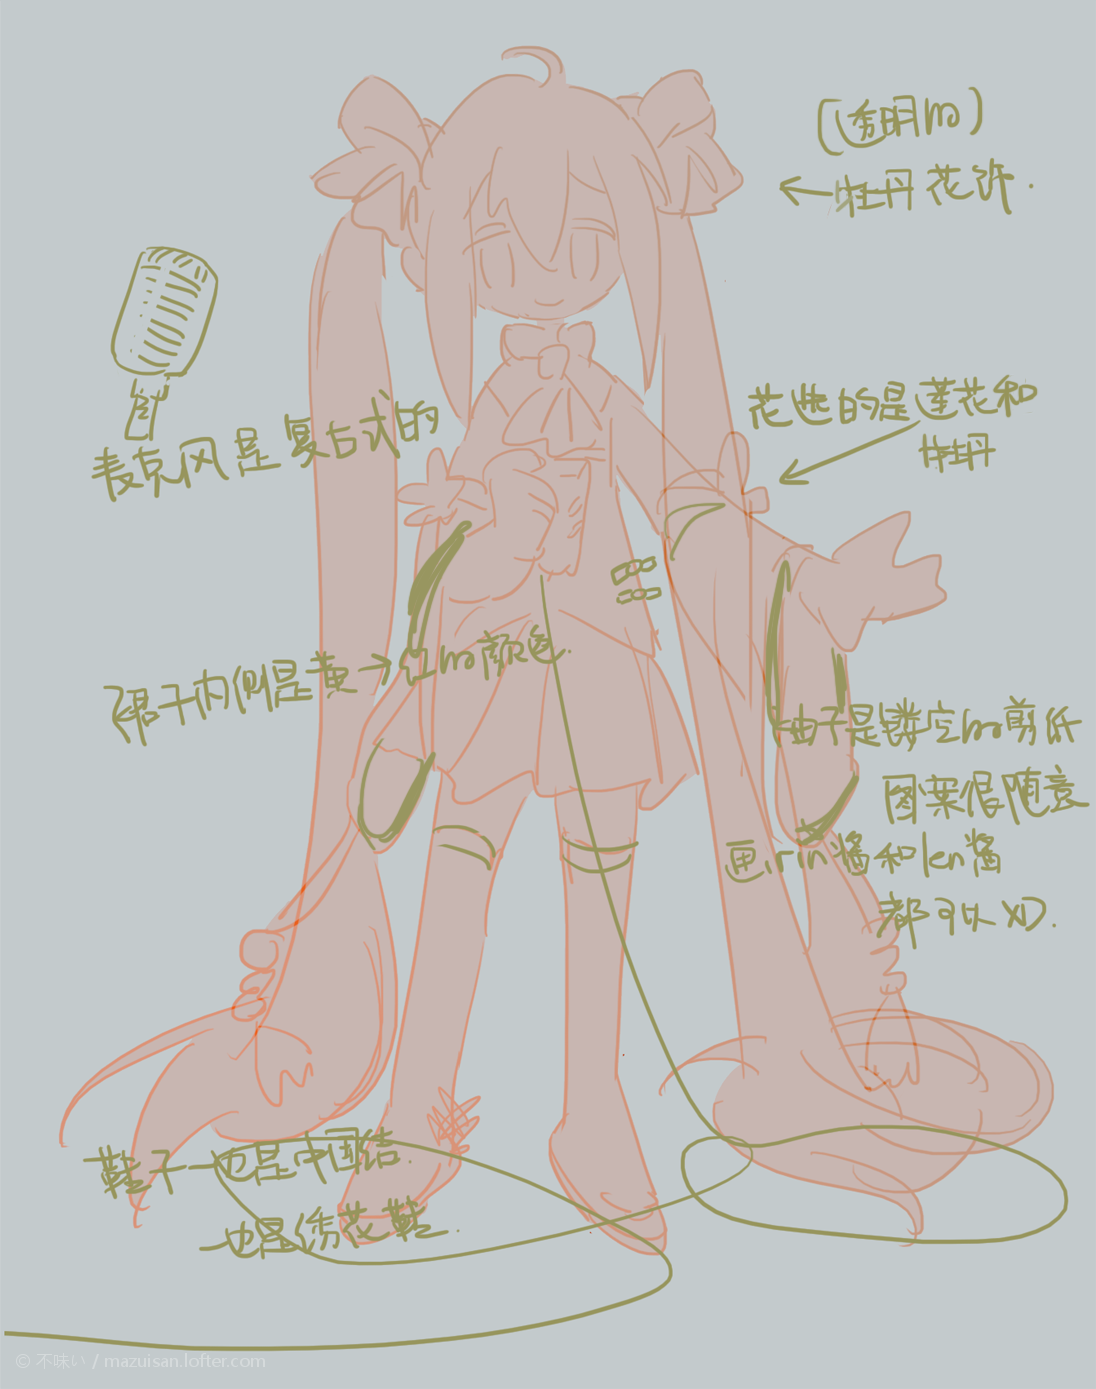 (透明的)
←牡丹花许.
花边的是莲花和
牡丹
麦克风是复古式的
裙子内侧是黄→红的颜色.
袖子是镂空的剪纸
图案很随意
画rin酱和len酱
都可以XD.
鞋子也是中国结.
也是绣花鞋.
© 不味い / mazuisan.lofter.com